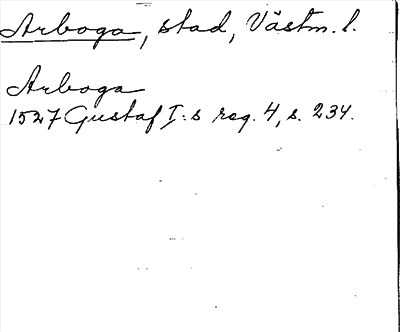 Arboga, stad, Västm. l.
Arboga
1527 Gustaf I:s reg. 4, s. 234.